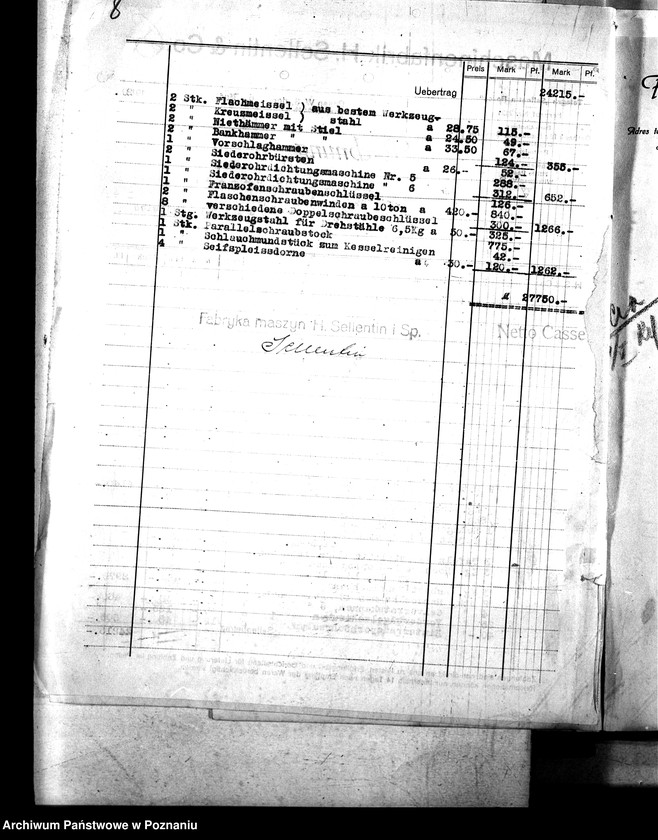 8
Preis Mark Pf. Mark Pf.
Uebertrag 24215.-
2 Stk. Flachmeissel ) aus bestem Werkzeug-
2 " Kreuzmeissel ) stahl a 28.75 115.-
2 " Niethämmer mit Stiel a 24.50 49.-
2 " Bankhammer " " a 33.50 67.-
1 " Vorschlaghammer 124.- 355.-
2 " Siederohrbürsten a 26.- 52.-
1 " Siederohrdichtungsmaschine Nr. 5 288.-
1 " Siederohrdichtungsmaschine " 6 312.- 652.-
1 " Franzofenschraubenschlüssel 126.-
2 " Flaschenschraubenwinden a 10ton a 420.- 840.-
8 " verschiedene Doppelschraubeschlüssel 300.- 1266.-
1 Stg. Werkzeugstahl für Drehstähle 6,5Kg a 50.- 325.-
1 Stk. Parallelschraubstock 775.-
1 " Schlauchmundstück zum Kesselreinigen 42.-
4 " Seifspleissdorne a 30.- 120.- 1262.-
27750.-
Fabryka maszyn H. Sellentin i Sp. Netto Casse
Sellentin
Adres
Archiwum Państwowe w Poznaniu